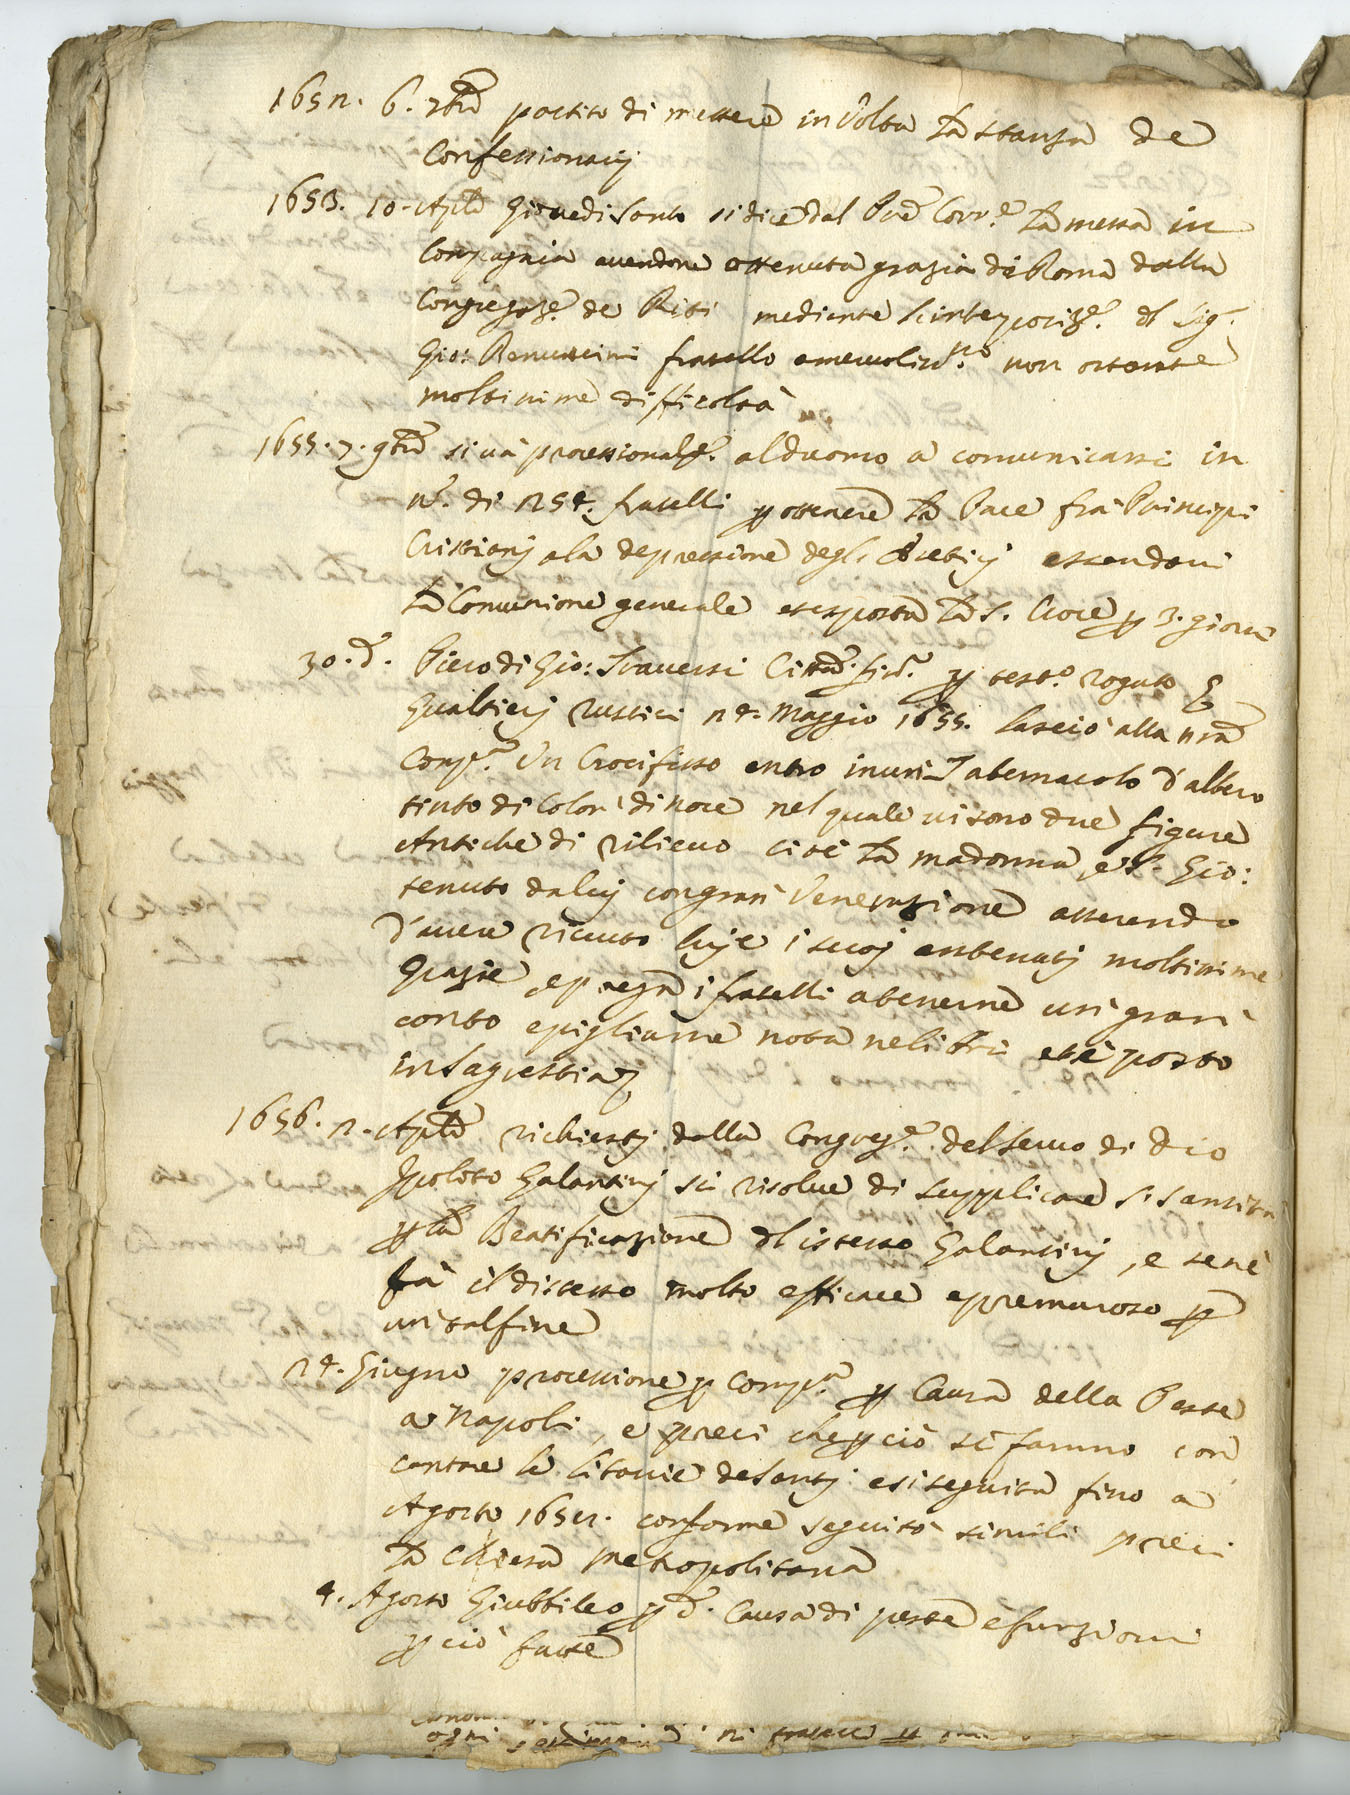 1652. 6. 7bre partito di mettere in Volta la stanza de
Confessionarij
1653. 10. Aple Giovedi Santo si dice dal Pre Corr.e la messa in
Compagnia avendone ottenuta grazia di Roma dalla
Congregaz.e de Riti mediante l'interposiz.e del Sig.r
Gio: Benuccini fratello amorevoliss.o non ostante
moltissime difficoltà
1655. 7. 9bre si và processionalm.e al duomo a comunicarsi in
n.o di 254. fratelli p ottenere la Pace frà Principi
Cristianj e la depressione degli Eretici essendovi
la Comunione generale et esposta la S. Croce p 3. giorni
30. d.o Piero di Gio: Traversi Cittad.o fior.o p test.o rogato
Gualtierj Rustici 24. Maggio 1655. lasciò alla nra
Comp.a Un Crocifisso entro in un Tabernacolo d'albero
tinto di Color di noce nel quale vi sono due figure
Antiche di rilievo cioè la madonna, e S. Gio:
tenuto da luj con gran Venerazione asserendo
d'avere ricevuto luj e i suoj antenatj moltissime
grazie, e prega i fratelli a tenerne un gran
conto e pigliarne nota ne libri et è posto
in Sagrestia
1656. 2. Aple richiestj dalla Congreg.e del servo di dio
Ipolito Galantinj si risolve di supplicare S. Santità
p la Beatificazione dl istesso Galantinj, e se ne
fà il disteso molto efficace e premuroso p
un tal fine
24. Giugno processione p Comp.a p Causa della Peste
a Napoli, e preci che p ciò si fanno con
cantare le litanie de Santj e si seguita fino a
Agosto 1657. conforme seguitò simili preci
la Chiesa metropolitana
4. Agosto Giubbileo p d.a Causa di peste e funzioni
p ciò fatte
ogni